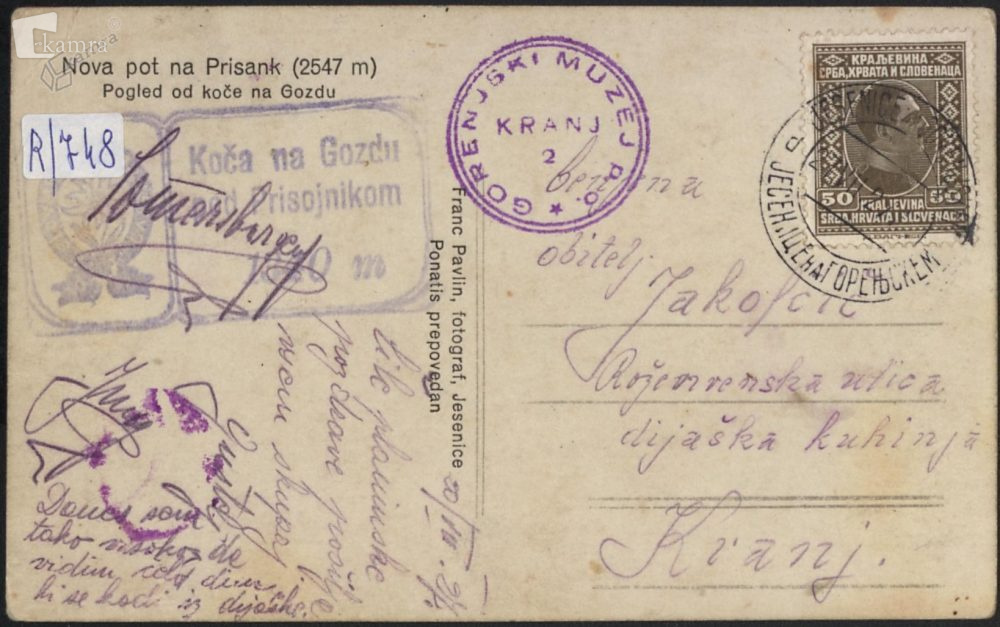 kamra
Nova pot na Prisank (2547 m)
Pogled od koče na Gozdu
R/748
Koča na Gozdu
pod Prisojnikom
m
GORENJSKI MUZEJ
KRANJ
2
Franc Pavlin, fotograf, Jesenice
Ponatis prepovedan
КРАЉЕВИНА
СРБА, ХРВАТА И СЛОВЕНАЦА
50 50
KRALJEVINA
SRBA, HRVATA I SLOVENACA
JESENICE
ЈЕСЕНИЦЕ НА ГОРЕЊСКЕМ
cenjena
obitelj
Jakofčič
Roženvenska ulica
dijaška kuhinja
Kranj.
20/VIII.
planinske
pozdrave pošilja
vsem skupaj
Gustelj
Danes sem
tako visoko, da
vidim celo dim,
ki se kadi iz dijaške.